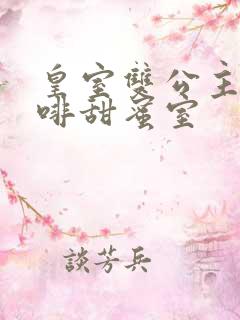 皇室雙公主
啡甜蜜室
談芳兵